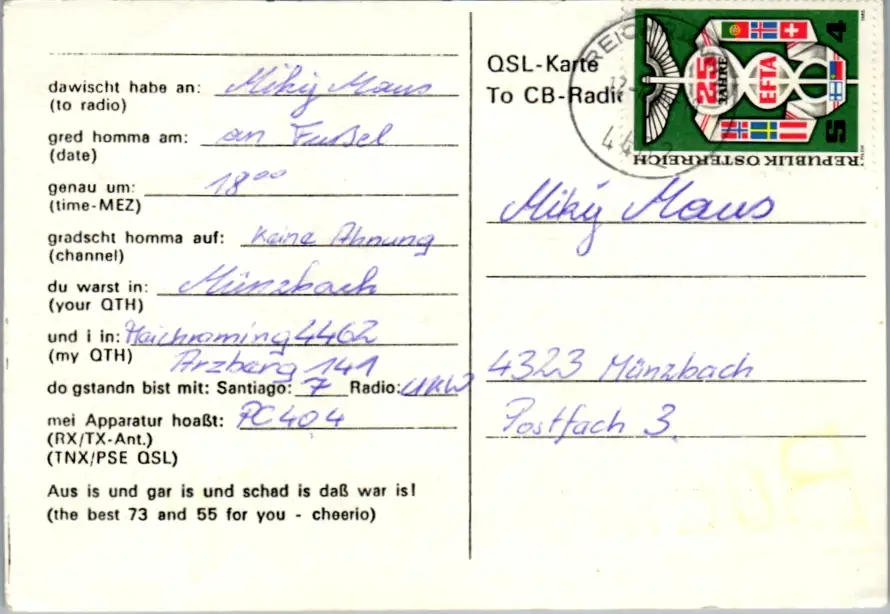 dawischt habe an: Miky Maus
(to radio)
gred homma am: an Fußel
(date)
genau um: 18⁰⁰
(time-MEZ)
gradscht homma auf: Keine Ahnung
(channel)
du warst in: Münzbach
(your QTH)
und i in: Haichraming 4462
(my QTH) Arzberg 141
do gstandn bist mit: Santiago: 7 Radio: UKW
mei Apparatur hoaßt: PC 404
(RX/TX-Ant.)
(TNX/PSE QSL)
Aus is und gar is und schad is daß war is!
(the best 73 and 55 for you - cheerio)
QSL-Karte
To CB-Radio
25 JAHRE
EFTA
S 4
REPUBLIK ÖSTERREICH
1985
Miky Maus
4323 Münzbach
Postfach 3.